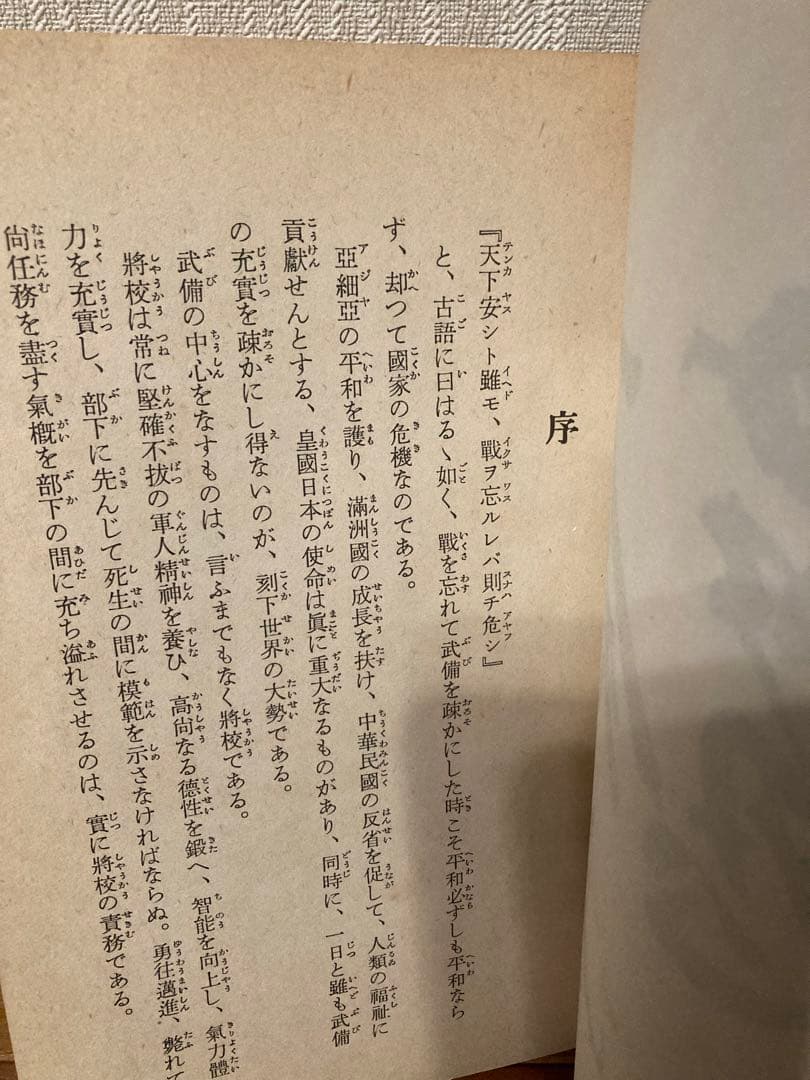 序
『天下安シト雖モ、戰ヲ忘ルレバ則チ危シ』
と、古語に曰はるゝ如く、戰を忘れて武備を疎かにした時こそ平和必ずしも平和なら
ず、却つて國家の危機なのである。
亞細亞の平和を護り、滿洲國の成長を扶け、中華民國の反省を促して、人類の福祉に
貢獻せんとする、皇國日本の使命は眞に重大なるものがあり、同時に、一日と雖も武備
の充實を疎かにし得ないのが、刻下世界の大勢である。
武備の中心をなすものは、言ふまでもなく將校である。
將校は常に堅確不拔の軍人精神を養ひ、高尙なる德性を鍛へ、智能を向上し、氣力體
力を充實し、部下に先んじて死生の間に模範を示さなければならぬ。勇往邁進、斃れて
尙任務を盡す氣槪を部下の間に充ち溢れさせるのは、實に將校の責務である。